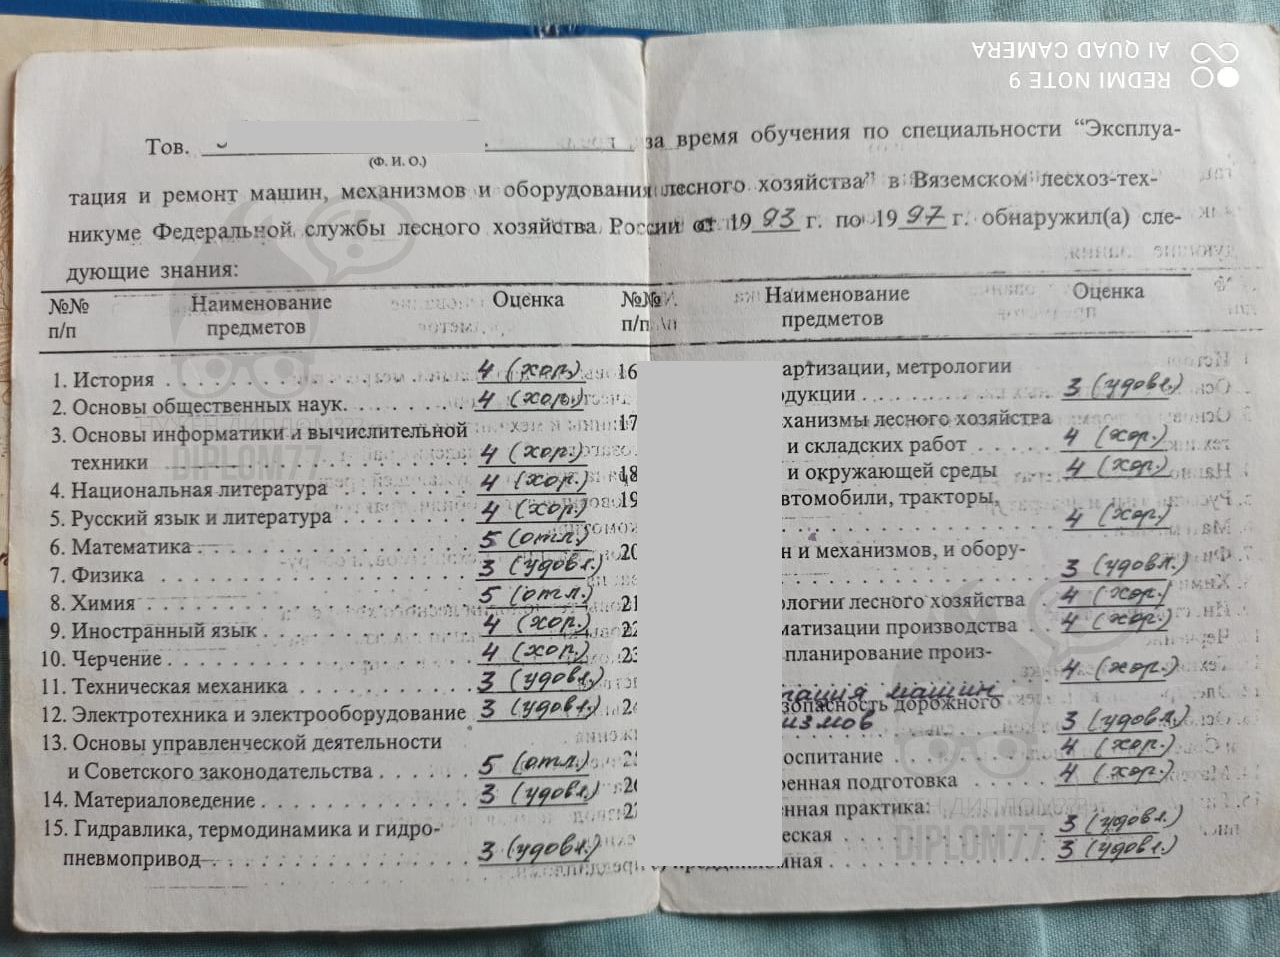 REDMI NOTE 9
AI QUAD CAMERA
Тов. за время обучения по специальности “Эксплуа-
(Ф. И. О.)
тация и ремонт машин, механизмов и оборудования лесного хозяйства” в Вяземском лесхоз-тех-
никуме Федеральной службы лесного хозяйства России от 1993 г. по 1997 г. обнаружил(а) сле-
дующие знания:
№№ Наименование Оценка
п/п предметов
1. История 4 (хор.)
2. Основы общественных наук. 4 (хор.)
3. Основы информатики и вычислительной
техники 4 (хор.)
4. Национальная литература 4 (хор.)
5. Русский язык и литература 4 (хор.)
6. Математика 5 (отл.)
7. Физика 3 (удовл.)
8. Химия 5 (отл.)
9. Иностранный язык 4 (хор.)
10. Черчение 4 (хор.)
11. Техническая механика 3 (удовл.)
12. Электротехника и электрооборудование 3 (удовл.)
13. Основы управленческой деятельности
и Советского законодательства 5 (отл.)
14. Материаловедение 3 (удовл.)
15. Гидравлика, термодинамика и гидро-
пневмопривод 3 (удовл.)
№№ Наименование Оценка
п/п предметов
16 артизации, метрологии
одукции 3 (удовл.)
17 ханизмы лесного хозяйства
и складских работ 4 (хор.)
18 и окружающей среды 4 (хор.)
19 втомобили, тракторы,
4 (хор.)
20 н и механизмов, и обору-
3 (удовл.)
21 ологии лесного хозяйства 4 (хор.)
22 матизации производства 4 (хор.)
23 планирование произ-
4 (хор.)
тация машин
24 зопасность дорожного
измов 3 (удовл.)
25 оспитание 4 (хор.)
26 енная подготовка 4 (хор.)
27 нная практика:
еская 3 (удовл.)
преддипломная 3 (удовл.)
DIPLOM77
DIPLOM77